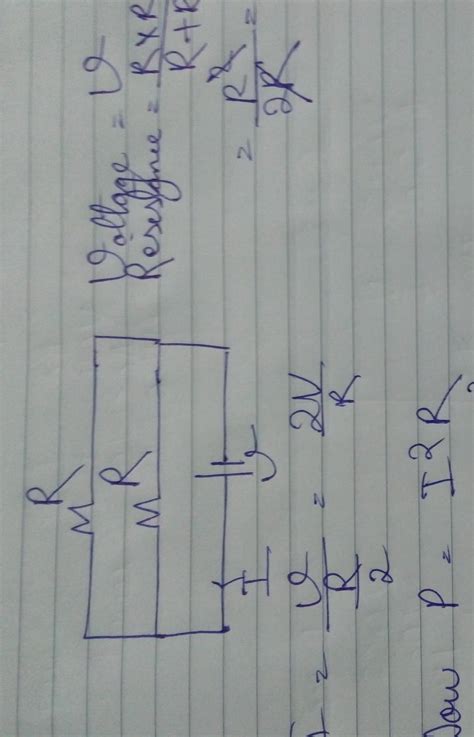 R
R
V
I
Voltage = V
Resistance = R×R / R+R
= R² / 2R =
I = V / R/2 = 2V / R
Now P = I²R